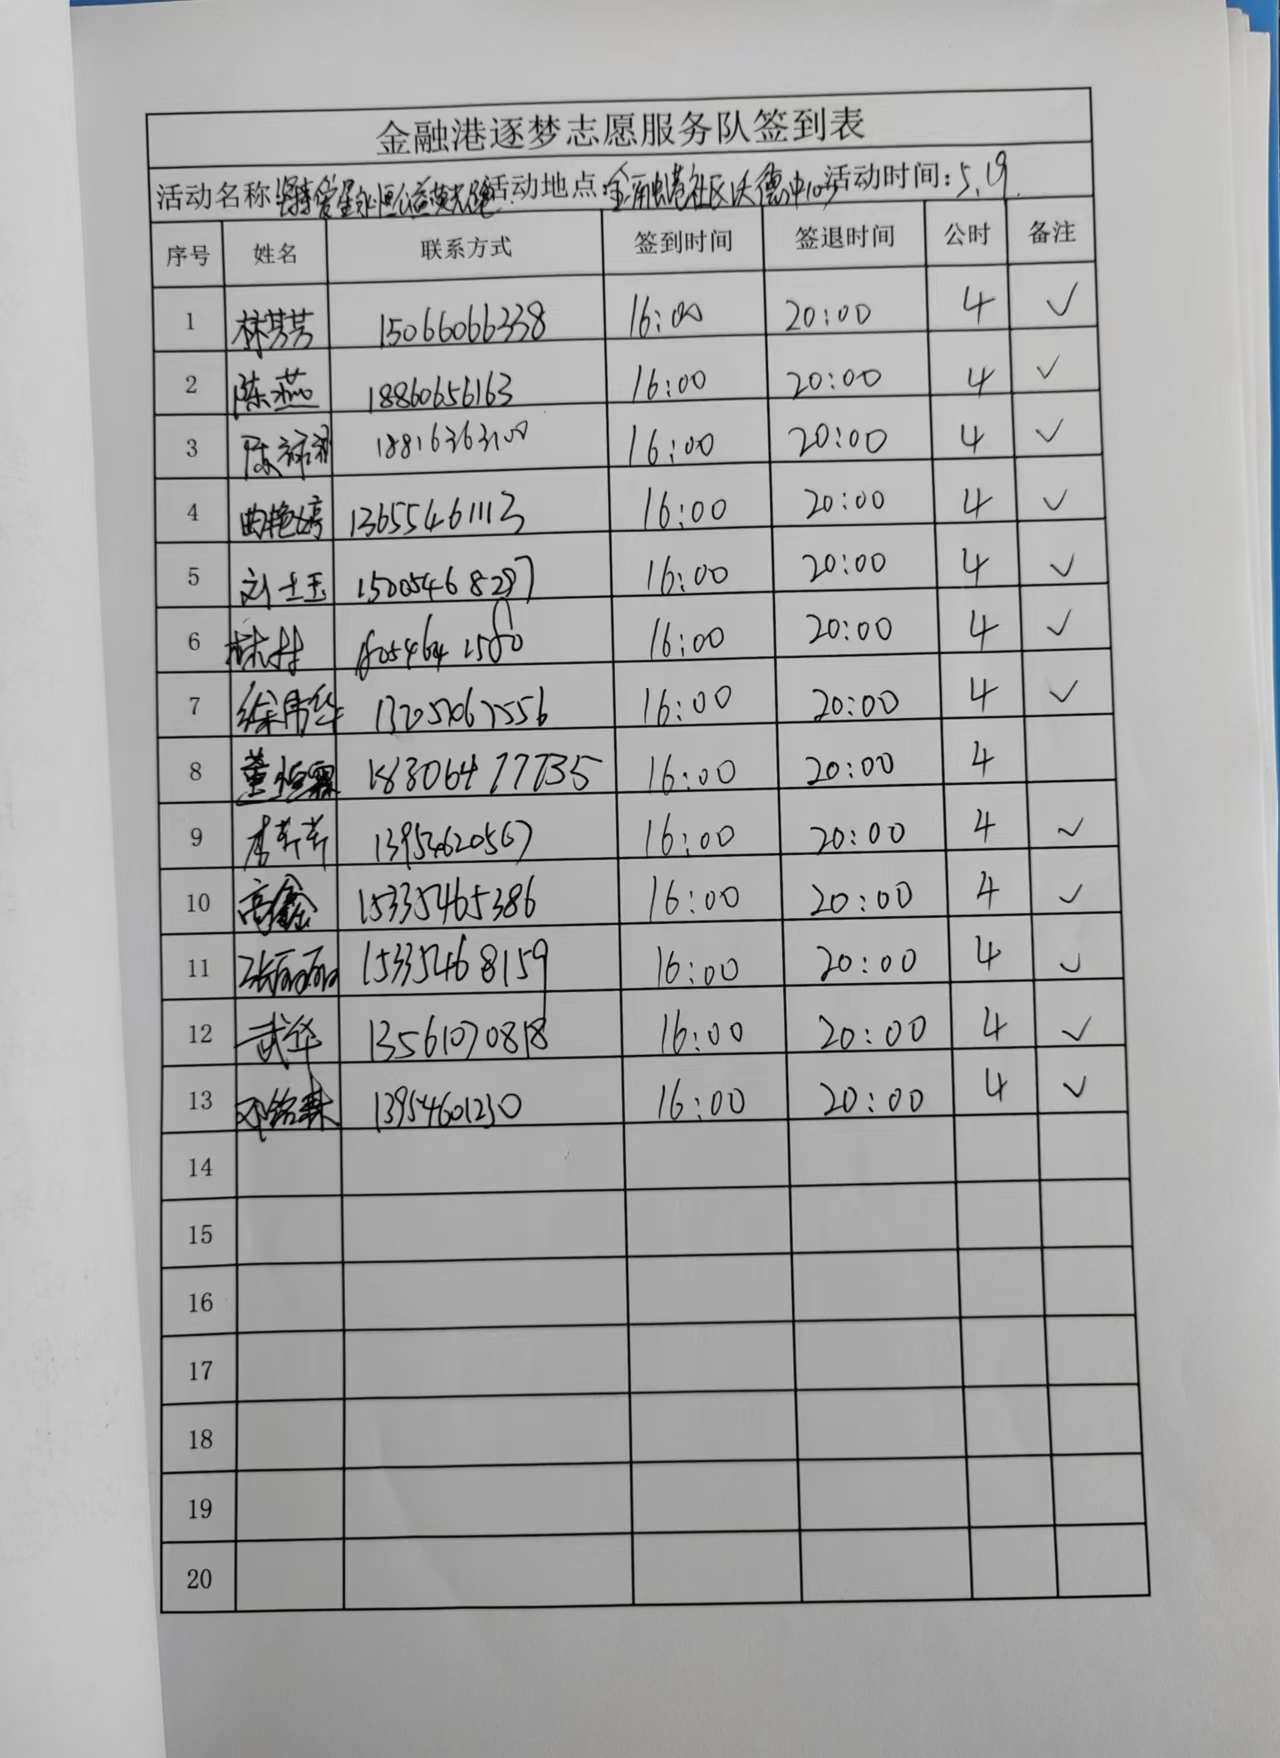 金融港逐梦志愿服务队签到表
活动名称: 爱星永恒公益 活动地点: 金融港社区沃德中心 活动时间: 5.19
序号 姓名 联系方式 签到时间 签退时间 公时 备注
1 林芳芳 15066066338 16:00 20:00 4 ✓
2 陈燕 18860656163 16:00 20:00 4 ✓
3 陈 16:00 20:00 4 ✓
4 曲艳婷 13655461113 16:00 20:00 4 ✓
5 刘士玉 15005468287 16:00 20:00 4 ✓
6 16:00 20:00 4 ✓
7 徐伟华 16:00 20:00 4 ✓
8 董恒霖 18306477735 16:00 20:00 4
9 李芹芹 13954620567 16:00 20:00 4 ✓
10 高鑫 15335465386 16:00 20:00 4 ✓
11 张丽丽 15335468159 16:00 20:00 4 ✓
12 武华 13561070818 16:00 20:00 4 ✓
13 邓铭霖 13954601230 16:00 20:00 4 ✓
14
15
16
17
18
19
20